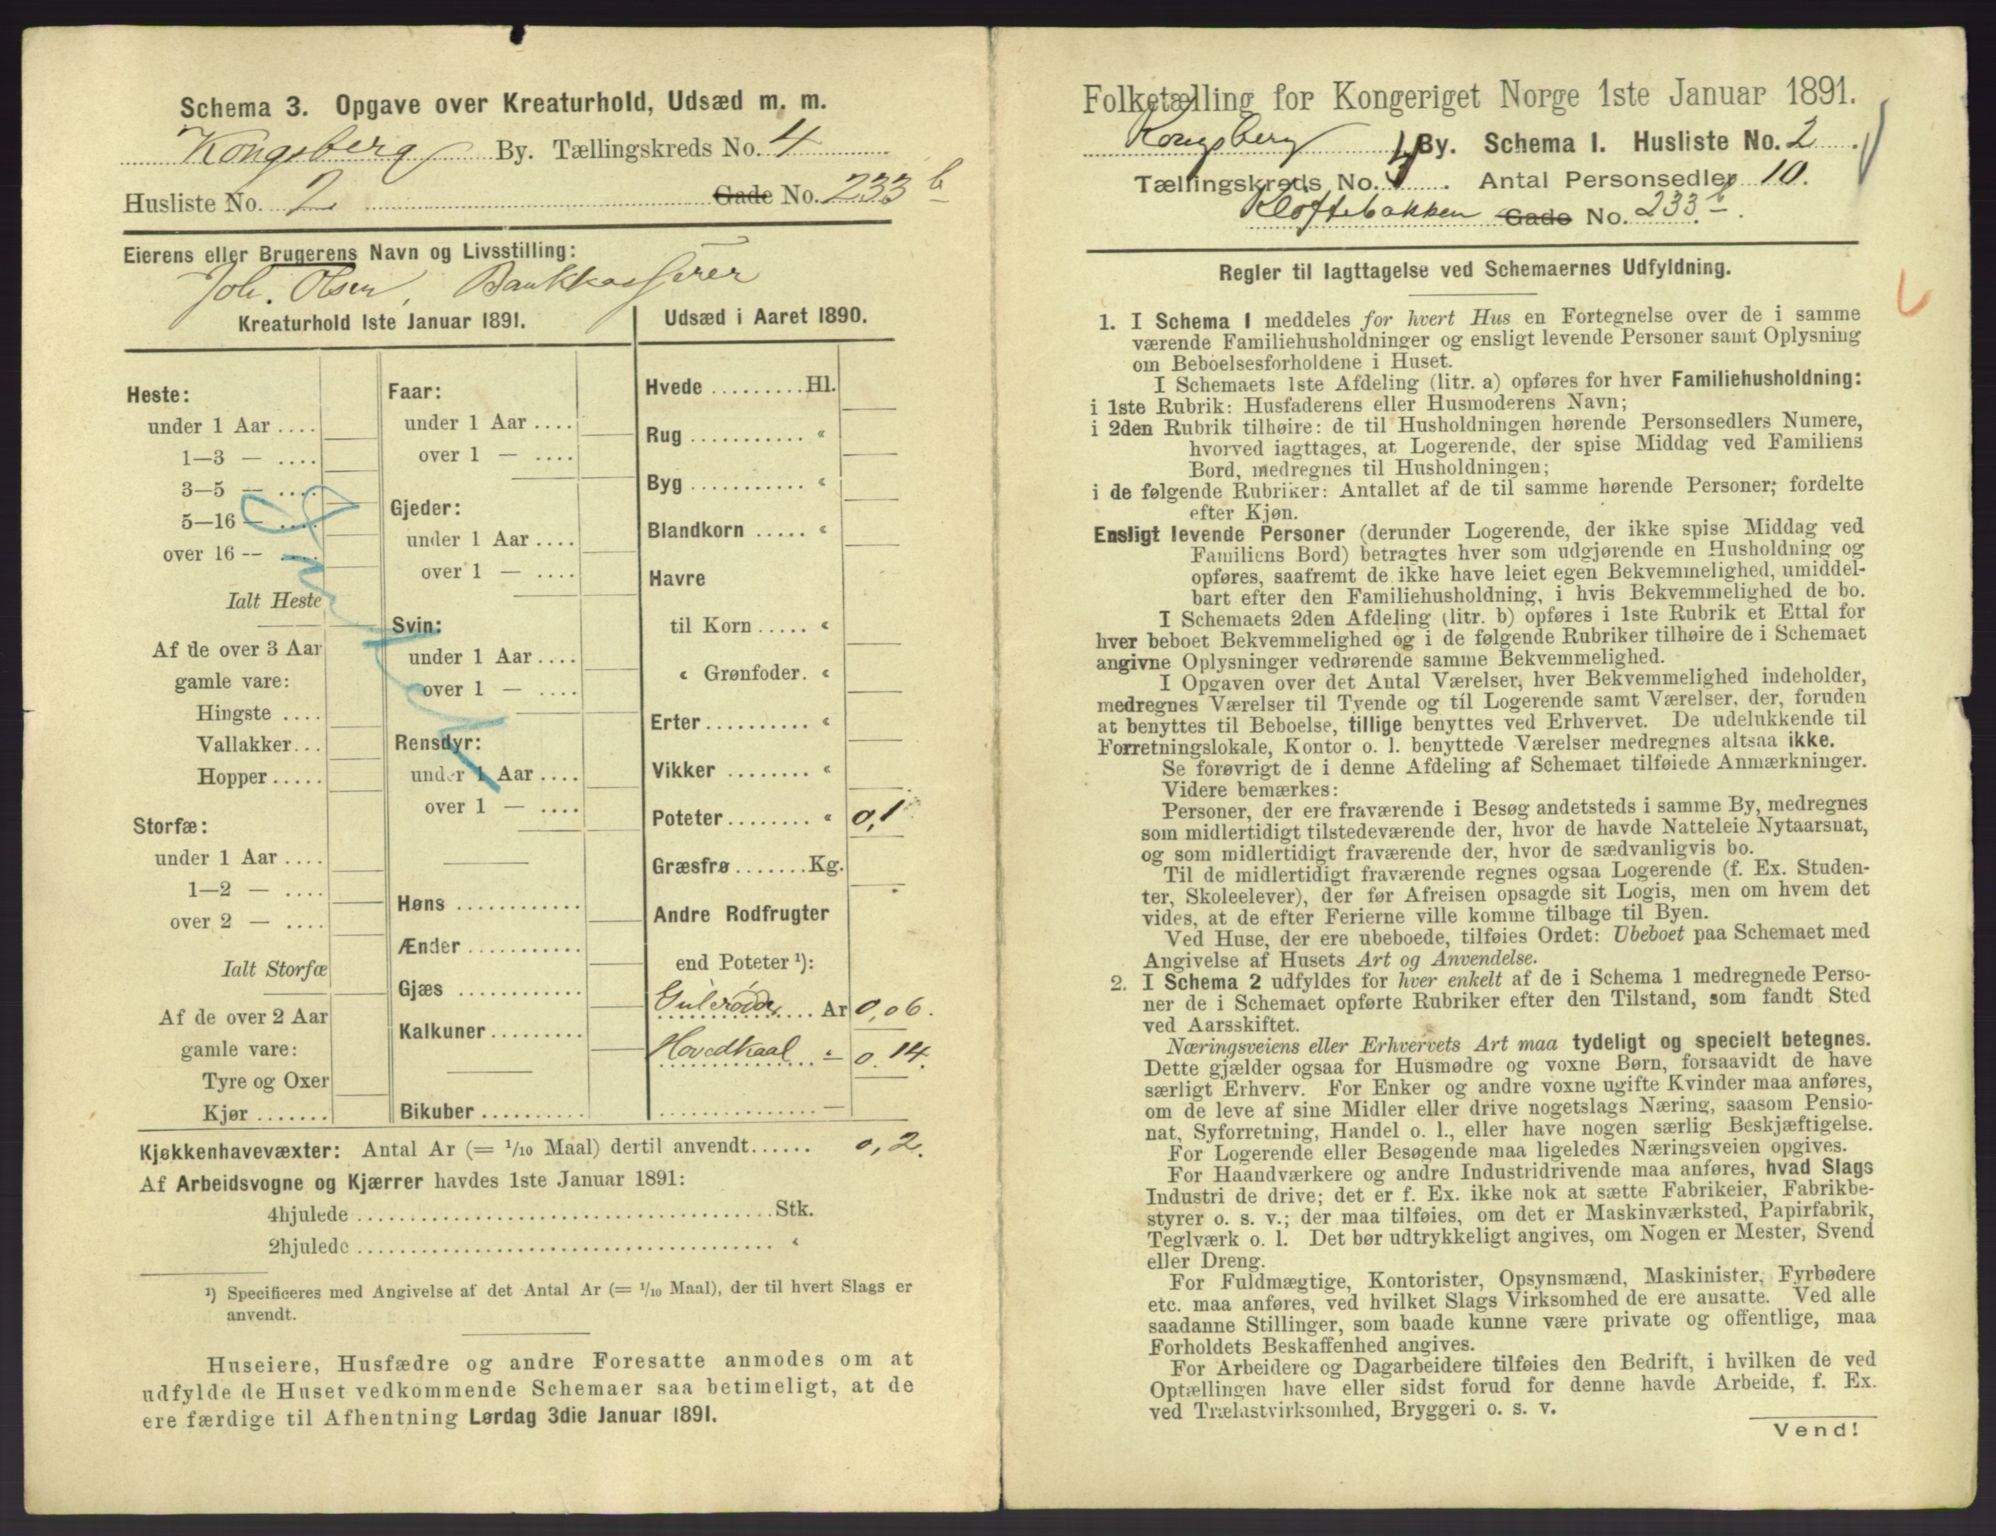 Schema 3. Opgave over Kreaturhold, Udsæd m. m.
Kongsberg By. Tællingskreds No. 4
Husliste No. 2 Gade No. 233 b
Eierens eller Brugerens Navn og Livsstilling:
Joh. Olsen, Bankkasserer
Kreaturhold 1ste Januar 1891.
Heste:
under 1 Aar ....
1—3 — ....
3—5 — ....
5—16 — ....
over 16 — ....
Ialt Heste
Af de over 3 Aar
gamle vare:
Hingste ....
Vallakker...
Hopper.....
Storfæ:
under 1 Aar ....
1—2 — ....
over 2 — ....
Ialt Storfæ
Af de over 2 Aar
gamle vare:
Tyre og Oxer
Kjør .......
Faar:
under 1 Aar ....
over 1 — ....
Gjeder:
under 1 Aar ....
over 1 — ....
Svin:
under 1 Aar....
over 1 — ....
Rensdyr:
under 1 Aar ....
over 1 — ....
Høns ............
Ænder ...........
Gjæs ............
Kalkuner.........
Bikuber..........
Udsæd i Aaret 1890.
Hvede .........Hl.
Rug ........... "
Byg ........... "
Blandkorn ..... "
Havre
til Korn ..... "
" Grønfoder. "
Erter.......... "
Vikker ........ "
Poteter........ " 0,1
Græsfrø.......Kg.
Andre Rodfrugter
end Poteter ¹):
Gulerødder Ar 0,06.
Hovedkaal " — 0.14.
............... —
Kjøkkenhavevæxter: Antal Ar (= 1/10 Maal) dertil anvendt...... 0,2.
Af Arbeidsvogne og Kjærrer havdes 1ste Januar 1891:
4hjulede ........................................Stk.
2hjulede ........................................ "
¹) Specificeres med Angivelse af det Antal Ar (= 1/10 Maal), der til hvert Slags er
anvendt.
Huseiere, Husfædre og andre Foresatte anmodes om at
udfylde de Huset vedkommende Schemaer saa betimeligt, at de
ere færdige til Afhentning Lørdag 3die Januar 1891.
Folketælling for Kongeriget Norge 1ste Januar 1891.
Kongsberg By. Schema I. Husliste No. 2
Tællingskreds No. 4. Antal Personsedler 10.
Kløftebakken Gade No. 233 b.
Regler til Iagttagelse ved Schemaernes Udfyldning.
1. I Schema 1 meddeles for hvert Hus en Fortegnelse over de i samme
værende Familiehusholdninger og ensligt levende Personer samt Oplysning
om Beboelsesforholdene i Huset.
I Schemaets 1ste Afdeling (litr. a) opføres for hver Familiehusholdning:
i 1ste Rubrik: Husfaderens eller Husmoderens Navn;
i 2den Rubrik tilhøire: de til Husholdningen hørende Personsedlers Numere,
hvorved iagttages, at Logerende, der spise Middag ved Familiens
Bord, medregnes til Husholdningen;
i de følgende Rubriker: Antallet af de til samme hørende Personer; fordelte
efter Kjøn.
Ensligt levende Personer (derunder Logerende, der ikke spise Middag ved
Familiens Bord) betragtes hver som udgjørende en Husholdning og
opføres, saafremt de ikke have leiet egen Bekvemmelighed, umiddel-
bart efter den Familiehusholdning, i hvis Bekvemmelighed de bo.
I Schemaets 2den Afdeling (litr. b) opføres i 1ste Rubrik et Ettal for
hver beboet Bekvemmelighed og i de følgende Rubriker tilhøire de i Schemaet
angivne Oplysninger vedrørende samme Bekvemmelighed.
I Opgaven over det Antal Værelser, hver Bekvemmelighed indeholder,
medregnes Værelser til Tyende og til Logerende samt Værelser, der, foruden
at benyttes til Beboelse, tillige benyttes ved Erhvervet. De udelukkende til
Forretningslokale, Kontor o. l. benyttede Værelser medregnes altsaa ikke.
Se forøvrigt de i denne Afdeling af Schemaet tilføiede Anmærkninger.
Videre bemærkes:
Personer, der ere fraværende i Besøg andetsteds i samme By, medregnes
som midlertidigt tilstedeværende der, hvor de havde Natteleie Nytaarsnat,
og som midlertidigt fraværende der, hvor de sædvanligvis bo.
Til de midlertidigt fraværende regnes ogsaa Logerende (f. Ex. Studen-
ter, Skoleelever), der før Afreisen opsagde sit Logis, men om hvem det
vides, at de efter Ferierne ville komme tilbage til Byen.
Ved Huse, der ere ubeboede, tilføies Ordet: Ubeboet paa Schemaet med
Angivelse af Husets Art og Anvendelse.
2. I Schema 2 udfyldes for hver enkelt af de i Schema 1 medregnede Perso-
ner de i Schemaet opførte Rubriker efter den Tilstand, som fandt Sted
ved Aarsskiftet.
Næringsveiens eller Erhvervets Art maa tydeligt og specielt betegnes.
Dette gjælder ogsaa for Husmødre og voxne Børn, forsaavidt de have
særligt Erhverv. For Enker og andre voxne ugifte Kvinder maa anføres,
om de leve af sine Midler eller drive nogetslags Næring, saasom Pensio-
nat, Syforretning, Handel o. l., eller have nogen særlig Beskjæftigelse.
For Logerende eller Besøgende maa ligeledes Næringsveien opgives.
For Haandværkere og andre Industridrivende maa anføres, hvad Slags
Industri de drive; det er f. Ex. ikke nok at sætte Fabrikeier, Fabrikbe-
styrer o. s. v.; der maa tilføies, om det er Maskinværksted, Papirfabrik,
Teglværk o. l. Det bør udtrykkeligt angives, om Nogen er Mester, Svend
eller Dreng.
For Fuldmægtige, Kontorister, Opsynsmænd, Maskinister, Fyrbødere
etc. maa anføres, ved hvilket Slags Virksomhed de ere ansatte. Ved alle
saadanne Stillinger, som baade kunne være private og offentlige, maa
Forholdets Beskaffenhed angives.
For Arbeidere og Dagarbeidere tilføies den Bedrift, i hvilken de ved
Optællingen have eller sidst forud for denne havde Arbeide, f. Ex.
ved Trælastvirksomhed, Bryggeri o. s. v.
Vend!